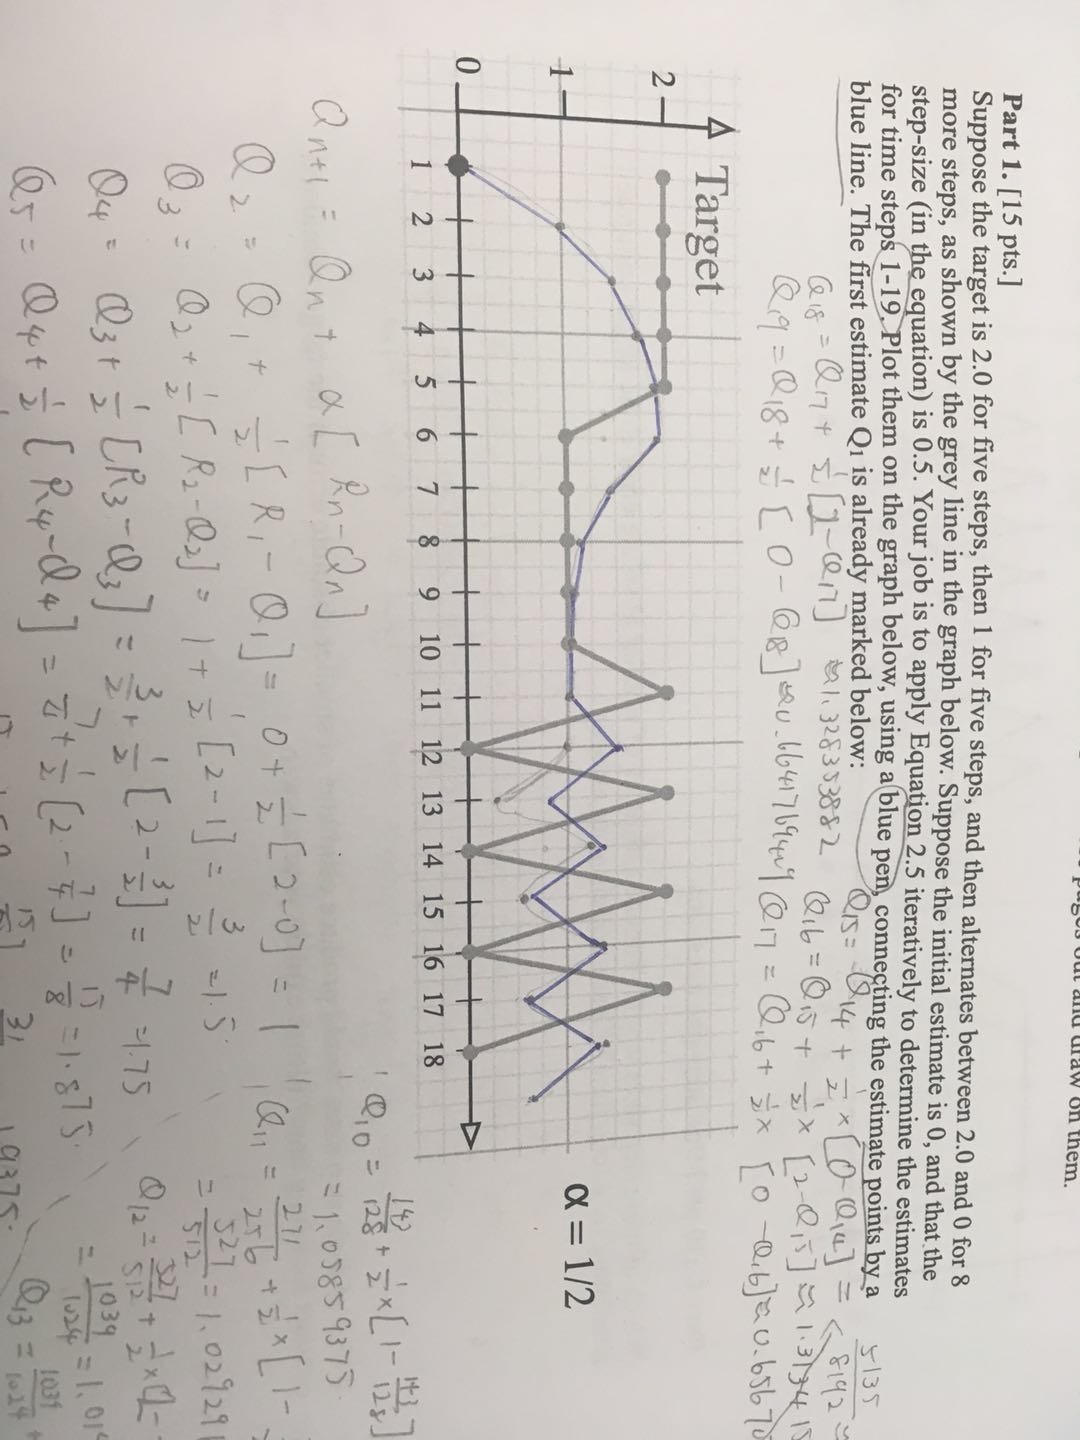 Part 1. [15 pts.]
Suppose the target is 2.0 for five steps, then 1 for five steps, and then alternates between 2.0 and 0 for 8
more steps, as shown by the grey line in the graph below. Suppose the initial estimate is 0, and that the
step-size (in the equation) is 0.5. Your job is to apply Equation 2.5 iteratively to determine the estimates
for time steps 1-19. Plot them on the graph below, using a blue pen, connecting the estimate points by a
blue line. The first estimate Q₁ is already marked below:
Q₁₅ = Q₁₄ + ½ × [0-Q₁₄] =
5135
8192
Q₁₈ = Q₁₇ + ½ [2-Q₁₇] ≈ 1.328353882
Q₁₆ = Q₁₅ + ½ × [2-Q₁₅] ≈ 1.3134
Q₁₉ = Q₁₈ + ½ [0-Q₁₈] ≈ 0.6641769409
Q₁₇ = Q₁₆ + ½ × [0-Q₁₆] ≈ 0.6567
Target
2
1
0
1 2 3 4 5 6 7 8 9 10 11 12 13 14 15 16 17 18
α = 1/2
Qₙ₊₁ = Qₙ + α [Rₙ-Qₙ]
Q₂ = Q₁ + ½ [R₁-Q₁] = 0 + ½ [2-0] = 1
Q₃ = Q₂ + ½ [R₂-Q₂] = 1 + ½ [2-1] = 3/2 = 1.5
Q₄ = Q₃ + ½ [R₃-Q₃] = 3/2 + ½ [2-3/2] = 7/4 = 1.75
Q₅ = Q₄ + ½ [R₄-Q₄] = 7/4 + ½ [2-7/4] = 15/8 = 1.875
Q₁₀ = 143/128 + ½ × [1-143/128]
= 1.05859375
Q₁₁ = 271/256 + ½ × [1-
= 527/512 = 1.02929
Q₁₂ = 527/512 + ½ ×
= 1039/1024 = 1.014
Q₁₃ = 1039/1024 +